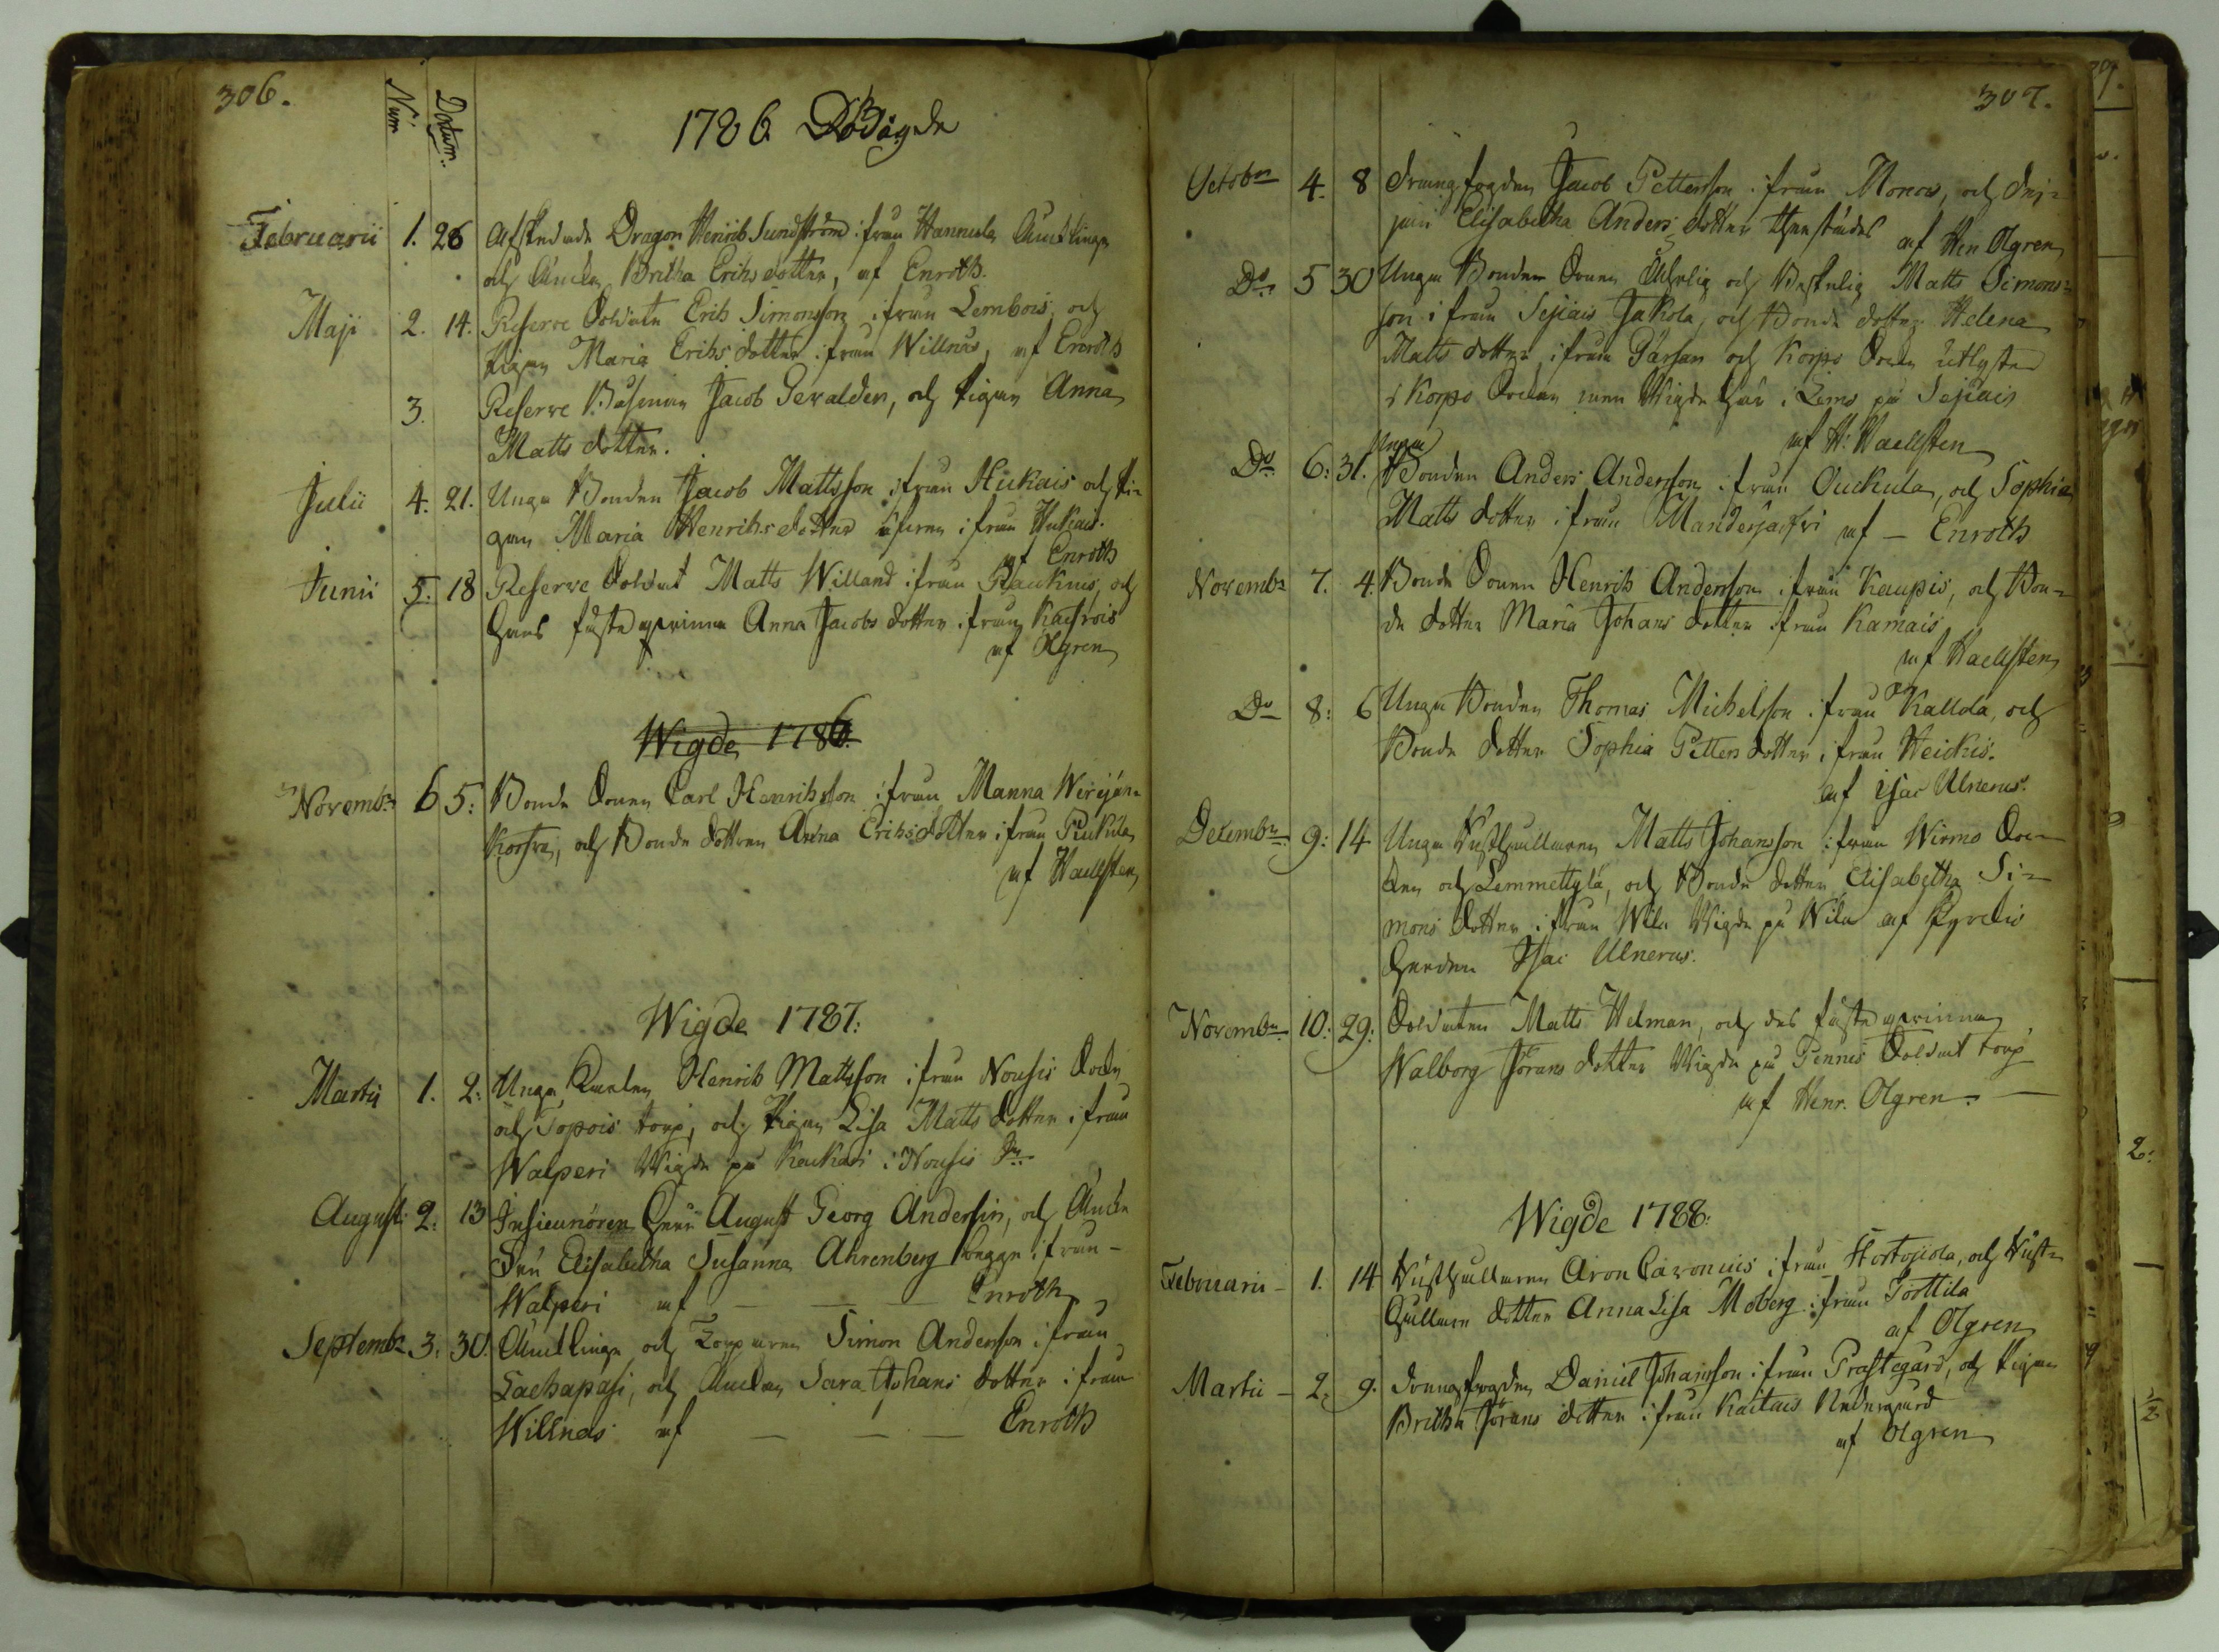 306.
Num
Datum.
1786
Februarii 1. 26 Afskedade Dragon Henrik Sundström ifrån Hannula Enklinge
och Änckan Britha Erichsdotter, af Enroth.
Maji 2. 14. Reserve Soldaten Erich Simonsson ifrån Lembois, och
Pigan Maria Erichsdotter ifrån Willnäs, af Enroth
3. Reserve Båtsman Jacob Sevalder, och Pigan Anna
Matts dotter.
Julii 4. 21. Unga Bonden Jacob Mattsson ifrån Hukais och Pi-
gan Maria Henrichs dotter äfven ifrån Hukais.
af Enroth
Junii 5. 18 Reserve Soldat Matts Willand ifrån Raukais, och
hans fästeqvinna Anna Jacobs dotter ifrån
af Olgren
Wigde 1786.
Novembr 6 5: Bonde Sonen Carl Henrichsson ifrån Manna
, och Bonde dottren Anna Erichsdotter ifrån
af Haellsten
Wigde 1787:
Martii 1. 2: Unga Henrich Mattsson ifrån Nousis Sockn
och Topois torp, och Pigan Lisa Matts dotter ifrån
Walperi Wigde på Kaukari i Nousis Sn
Augusti 2: 13 Herr August Georg Andersin, och Änke
Fru Elisabetha Susanna Ahrenberg begge ifrån -
Walperi af — — — Enroth
Septembr 3. 30. Enklinge och Torparen Simon Andersson ifrån
Laehapasi, och Änckan Sara Johans dotter ifrån
Willnäs af — — — Enroth
307.
Octobr 4. 8 Drengfogden Jacob Pettersson ifrån Monois, och Dej-
jan Elisabetha Anders dotter therstädes af Hen Olgren
Do 5 30 Unga Bonden Sonen Ährlig och Beskedlig Matts Simons-
son ifrån Sejiais Jakola, och Bonde dotter Helena
Matts dotter ifrån Pärsan och Korpo Sockn utlyste
i Korpo Socken men Wigde här i Lemo på Sejiais
af H: Haellsten
Do 6: 31. Unga Bonden Anders Andersson ifrån Ouckula, och Sophia
Matts dotter ifrån Manderjarfvi af — Enroth
Novembr 7. 4. Bonde Sonen Henrich Andersson ifrån Kaupis, och Bon-
de dotter Maria Johans dotter ifrån Kamais
af Haellsten
Do 8: 6 Unga Bonden Thomas Michelsson ifrån Kallda, och
Bonde dotter Sophia Petters dotter ifrån Heickis.
af Isac Ulnerus.
Decembr 9: 14 Unga Rusthållaren Matts Johansson ifrån Wirmo Soc-
ken och Lemmettylä, och Bonde dotter Elisabetha Si-
mons dotter ifrån Wila Wigde på Wila af Kyrckio
Herden Isac Ulnerus.
Novembr 10: 29: Soldaten Matts Helman, och des fästeqvinna
Walborg Jörans dotter Wigde på Pennis Soldat torp
af Henr. Olgren. —
Wigde 1788:
Februarii - 1. 14 Rusthållaren Aron Caronius ifrån Hortojiola, och Rust-
hållare dotter Anna Lisa Moberg ifrån Torttila
af Olgren
Martii - 2. 9. Drengfogden Daniel Johansson ifrån Prästegård, och Pigan
Britha Jörans dotter ifrån Kaitais Nedergård
af Olgren
2: